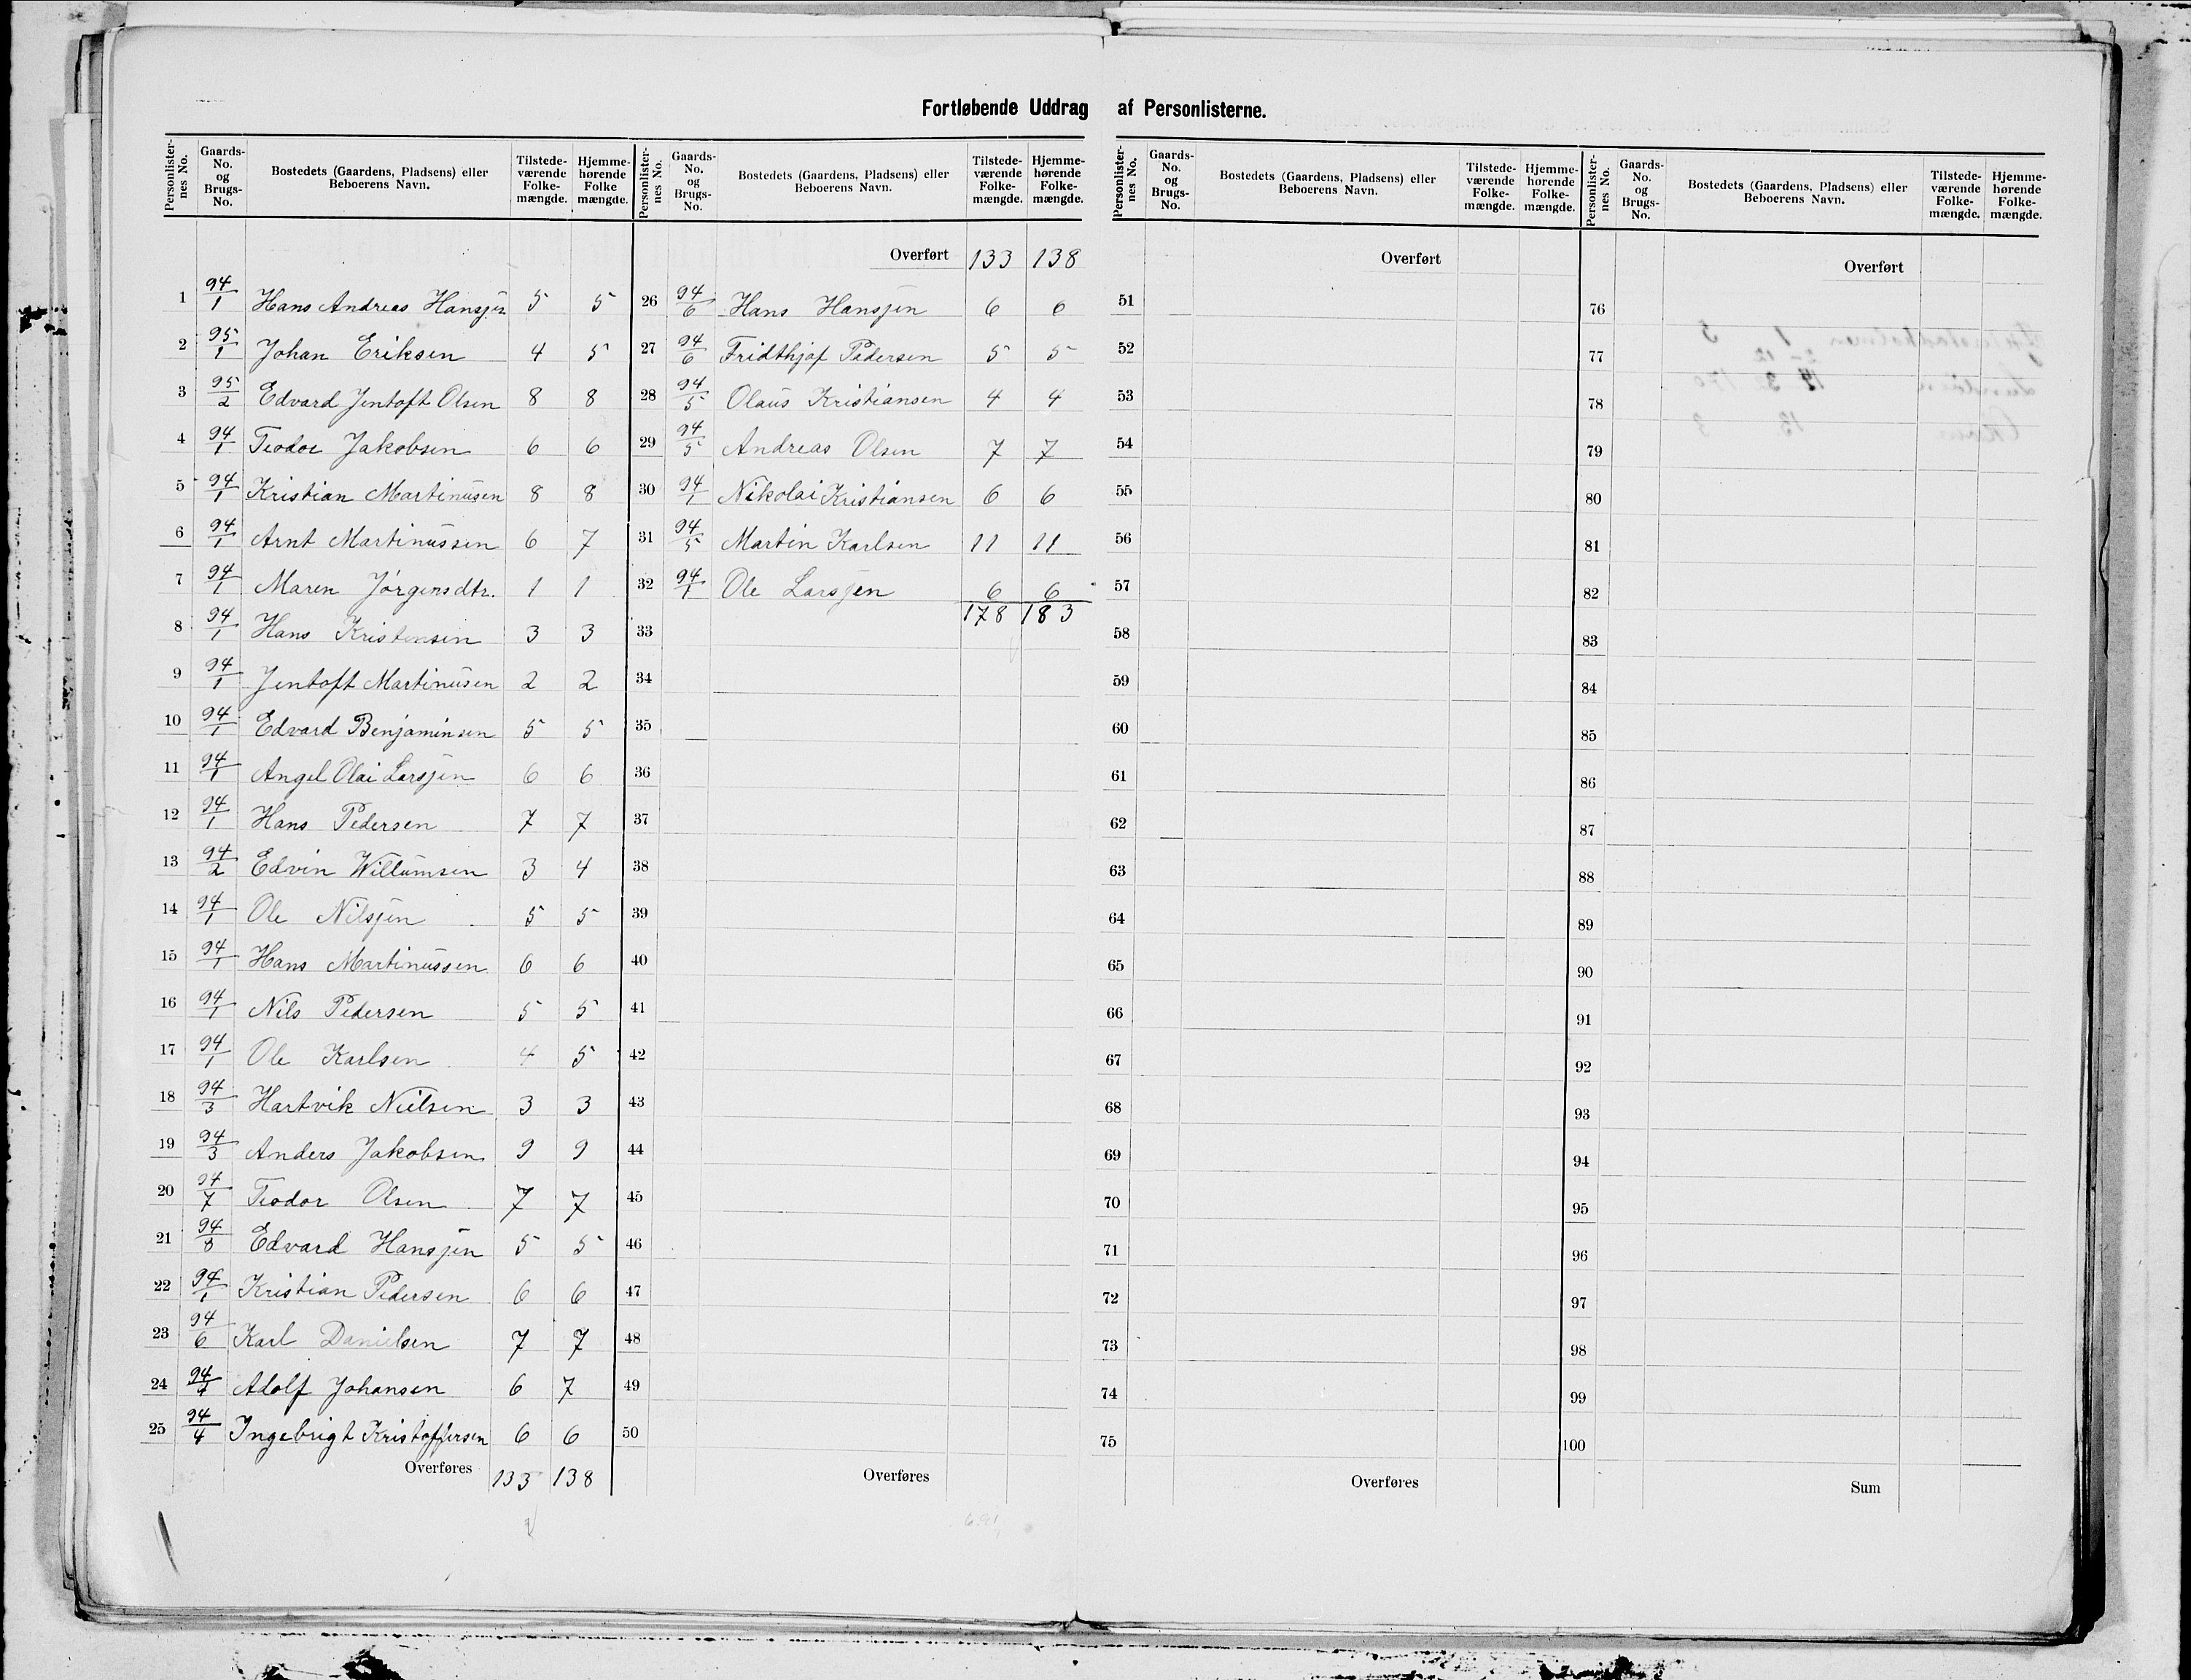 Fortløbende Uddrag af Personlisterne.
Personlister-nes No. Gaards-No. og Brugs-No. Bostedets (Gaardens, Pladsens) eller Beboerens Navn. Tilstede-værende Folke-mængde. Hjemme-hørende Folke mængde.
1 94/1 Hans Andreas Hansjen 5 5
2 95/1 Johan Eriksen 4 5
3 95/2 Edvard Jentoft Olsen 8 8
4 94/1 Teodor Jakobsen 6 6
5 94/1 Kristian Martinusen 8 8
6 94/1 Arnt Martinussen 6 7
7 94/1 Maren Jørgensdtr. 1 1
8 94/1 Hans Kristensen 3 3
9 94/1 Jentoft Martinusen 2 2
10 94/1 Edvard Benjaminsen 5 5
11 94/1 Angel Olai Larsjen 6 6
12 94/1 Hans Pedersen 7 7
13 94/2 Edvin Willumsen 3 4
14 94/1 Ole Nilsjen 5 5
15 94/1 Hans Martinussen 6 6
16 94/1 Nils Pedersen 5 5
17 94/1 Ole Karlsen 4 5
18 94/3 Hartvik Nielsen 3 3
19 94/3 Anders Jakobsen 9 9
20 94/7 Teodor Olsen 7 7
21 94/8 Edvard Hansjen 5 5
22 94/1 Kristian Pedersen 6 6
23 94/6 Karl Danielsen 7 7
24 94/4 Adolf Johansen 6 7
25 94/4 Ingebrigt Kristoffersen 6 6
Overføres 133 138
Personlister-nes No. Gaards-No. og Brugs-No. Bostedets (Gaardens, Pladsens) eller Beboerens Navn. Tilstede-værende Folke-mængde. Hjemme-hørende Folke-mængde.
Overført 133 138
26 94/6 Hans Hansjen 6 6
27 94/6 Fridthjof Pedersen 5 5
28 94/5 Olaus Kristiansen 4 4
29 94/5 Andreas Olsen 7 7
30 94/1 Nikolai Kristiansen 6 6
31 94/5 Martin Karlsen 11 11
32 94/1 Ole Larsjen 6 6
33 178 183
34
35
36
37
38
39
40
41
42
43
44
45
46
47
48
49
50
Overføres
Personlister-nes No. Gaards-No. og Brugs-No. Bostedets (Gaardens, Pladsens) eller Beboerens Navn. Tilstede-værende Folke-mængde. Hjemme-hørende Folke-mængde.
Overført
51
52
53
54
55
56
57
58
59
60
61
62
63
64
65
66
67
68
69
70
71
72
73
74
75
Overføres
Personlister-nes No. Gaards-No. og Brugs-No. Bostedets (Gaardens, Pladsens) eller Beboerens Navn. Tilstede-værende Folke-mængde. Hjemme-hørende Folke-mængde.
Overført
76
77
78
79
80
81
82
83
84
85
86
87
88
89
90
91
92
93
94
95
96
97
98
99
100
Sum